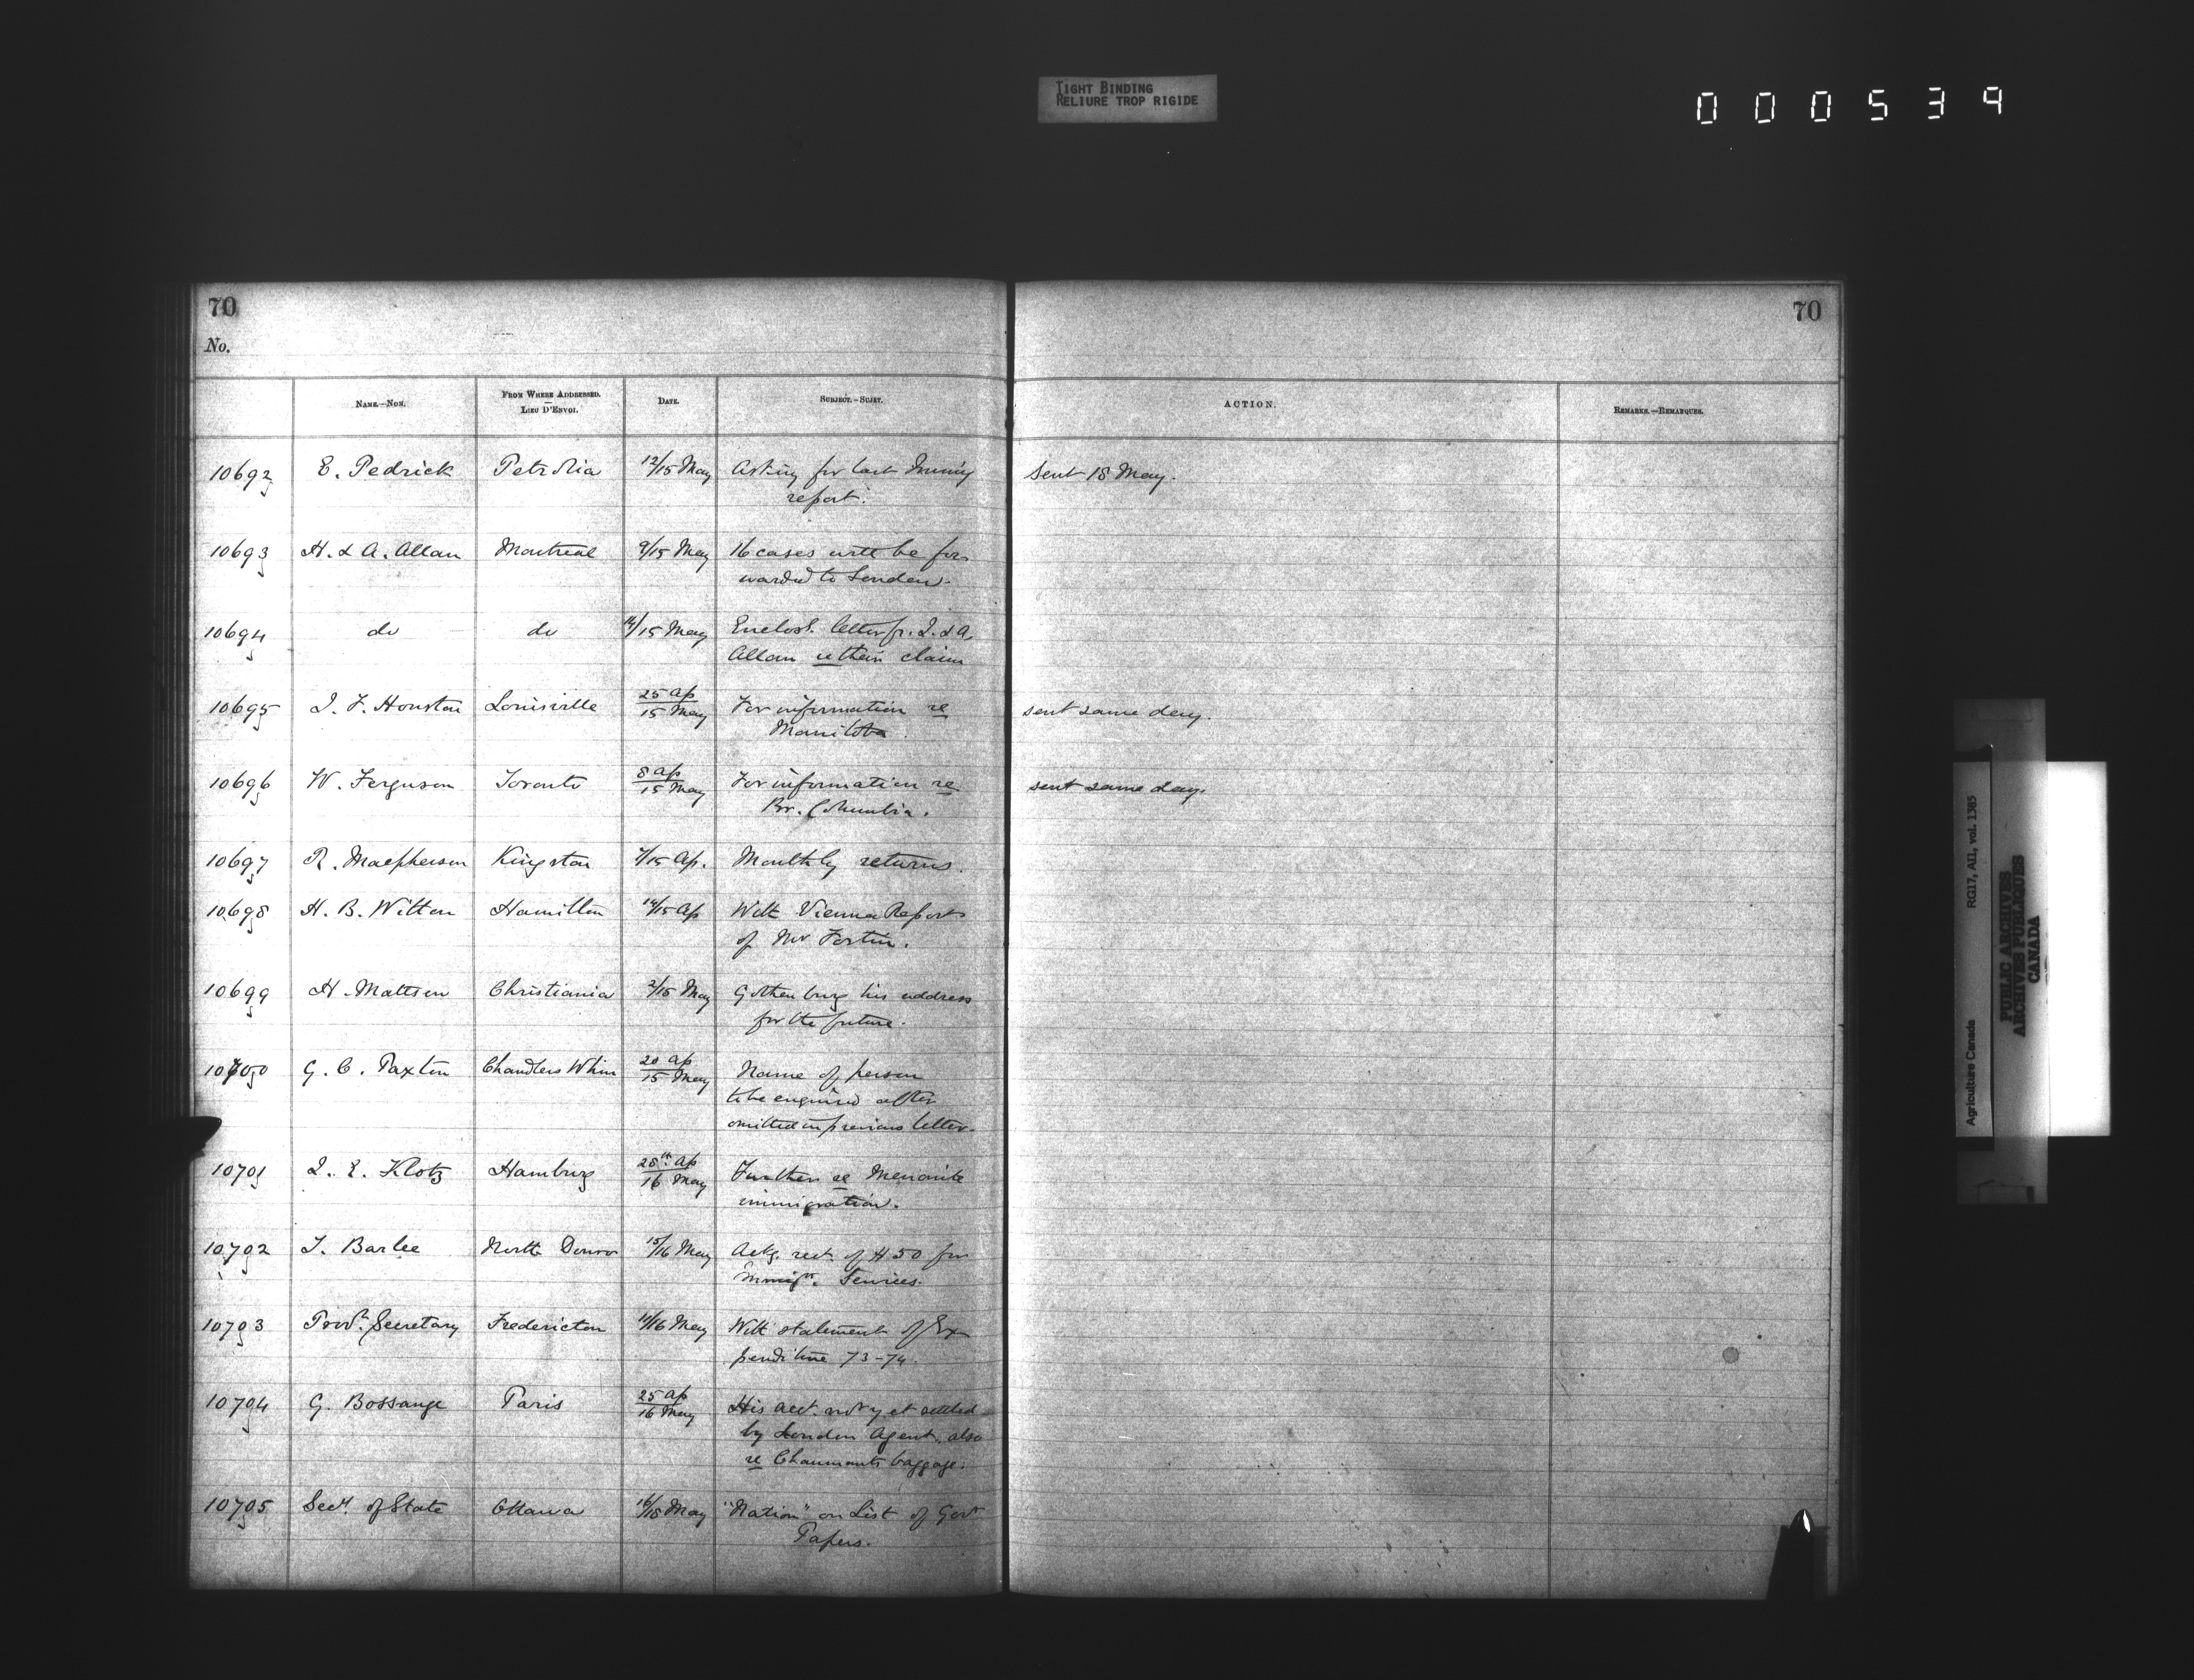 TIGHT BINDING
RELIURE TROP RIGIDE
000539
70
70
No.
NAME.—NOM.
FROM WHERE ADDRESSED.
—
LIEU D'ENVOI.
DATE.
SUBJECT.—SUJET.
ACTION.
REMARKS.—REMARQUES.
10692 E. Pedrick Petrolia 12/15 May Asking for last Immig
report.
sent 18 May.
10693 H. & A. Allan Montreal 9/15 May 16 cases will be for-
warded to London.
10694 do do 14/15 May Enclosg. letter fr. J. & A.
Allan re their claim
10695 J. F. Houston Louisville 25 Ap
15 May For information re
Manitoba.
sent same day.
10696 W. Ferguson Toronto 8 Ap
15 May For information re
Br. Columbia.
sent same day
10697 R. Macpherson Kingston 7/15 Ap. Monthly returns.
10698 H. B. Witton Hamilton 14/15 Ap With Vienna Report
of Mr Fortin.
10699 H. Mattson Christiania 2/15 May Gothenburg his address
for the future.
10700 G. C. Paxton Chandlers Whim 20 Ap
15 May Name of person
to be enquired after
omitted in previous letter.
10701 J. E. Klotz Hamburg 28th Ap
16 May Further re Menonite
immigration.
10702 T. Barlee North Douro 15/16 May Ackg. rect. of $50 for
Immign. Services.
10703 Provl. Secretary Fredericton 14/16 May With statement of Ex-
penditure 73-74.
10704 G. Bossange Paris 25 Ap
16 May His acct. not yet settled
by London Agent, also
re Chaumonts baggage.
10705 Secy. of State Ottawa 16/18 May "Nation" on List of Govt
Papers.
Agriculture Canada RG17, AI1, vol. 1385
PUBLIC ARCHIVES
ARCHIVES PUBLIQUES
CANADA